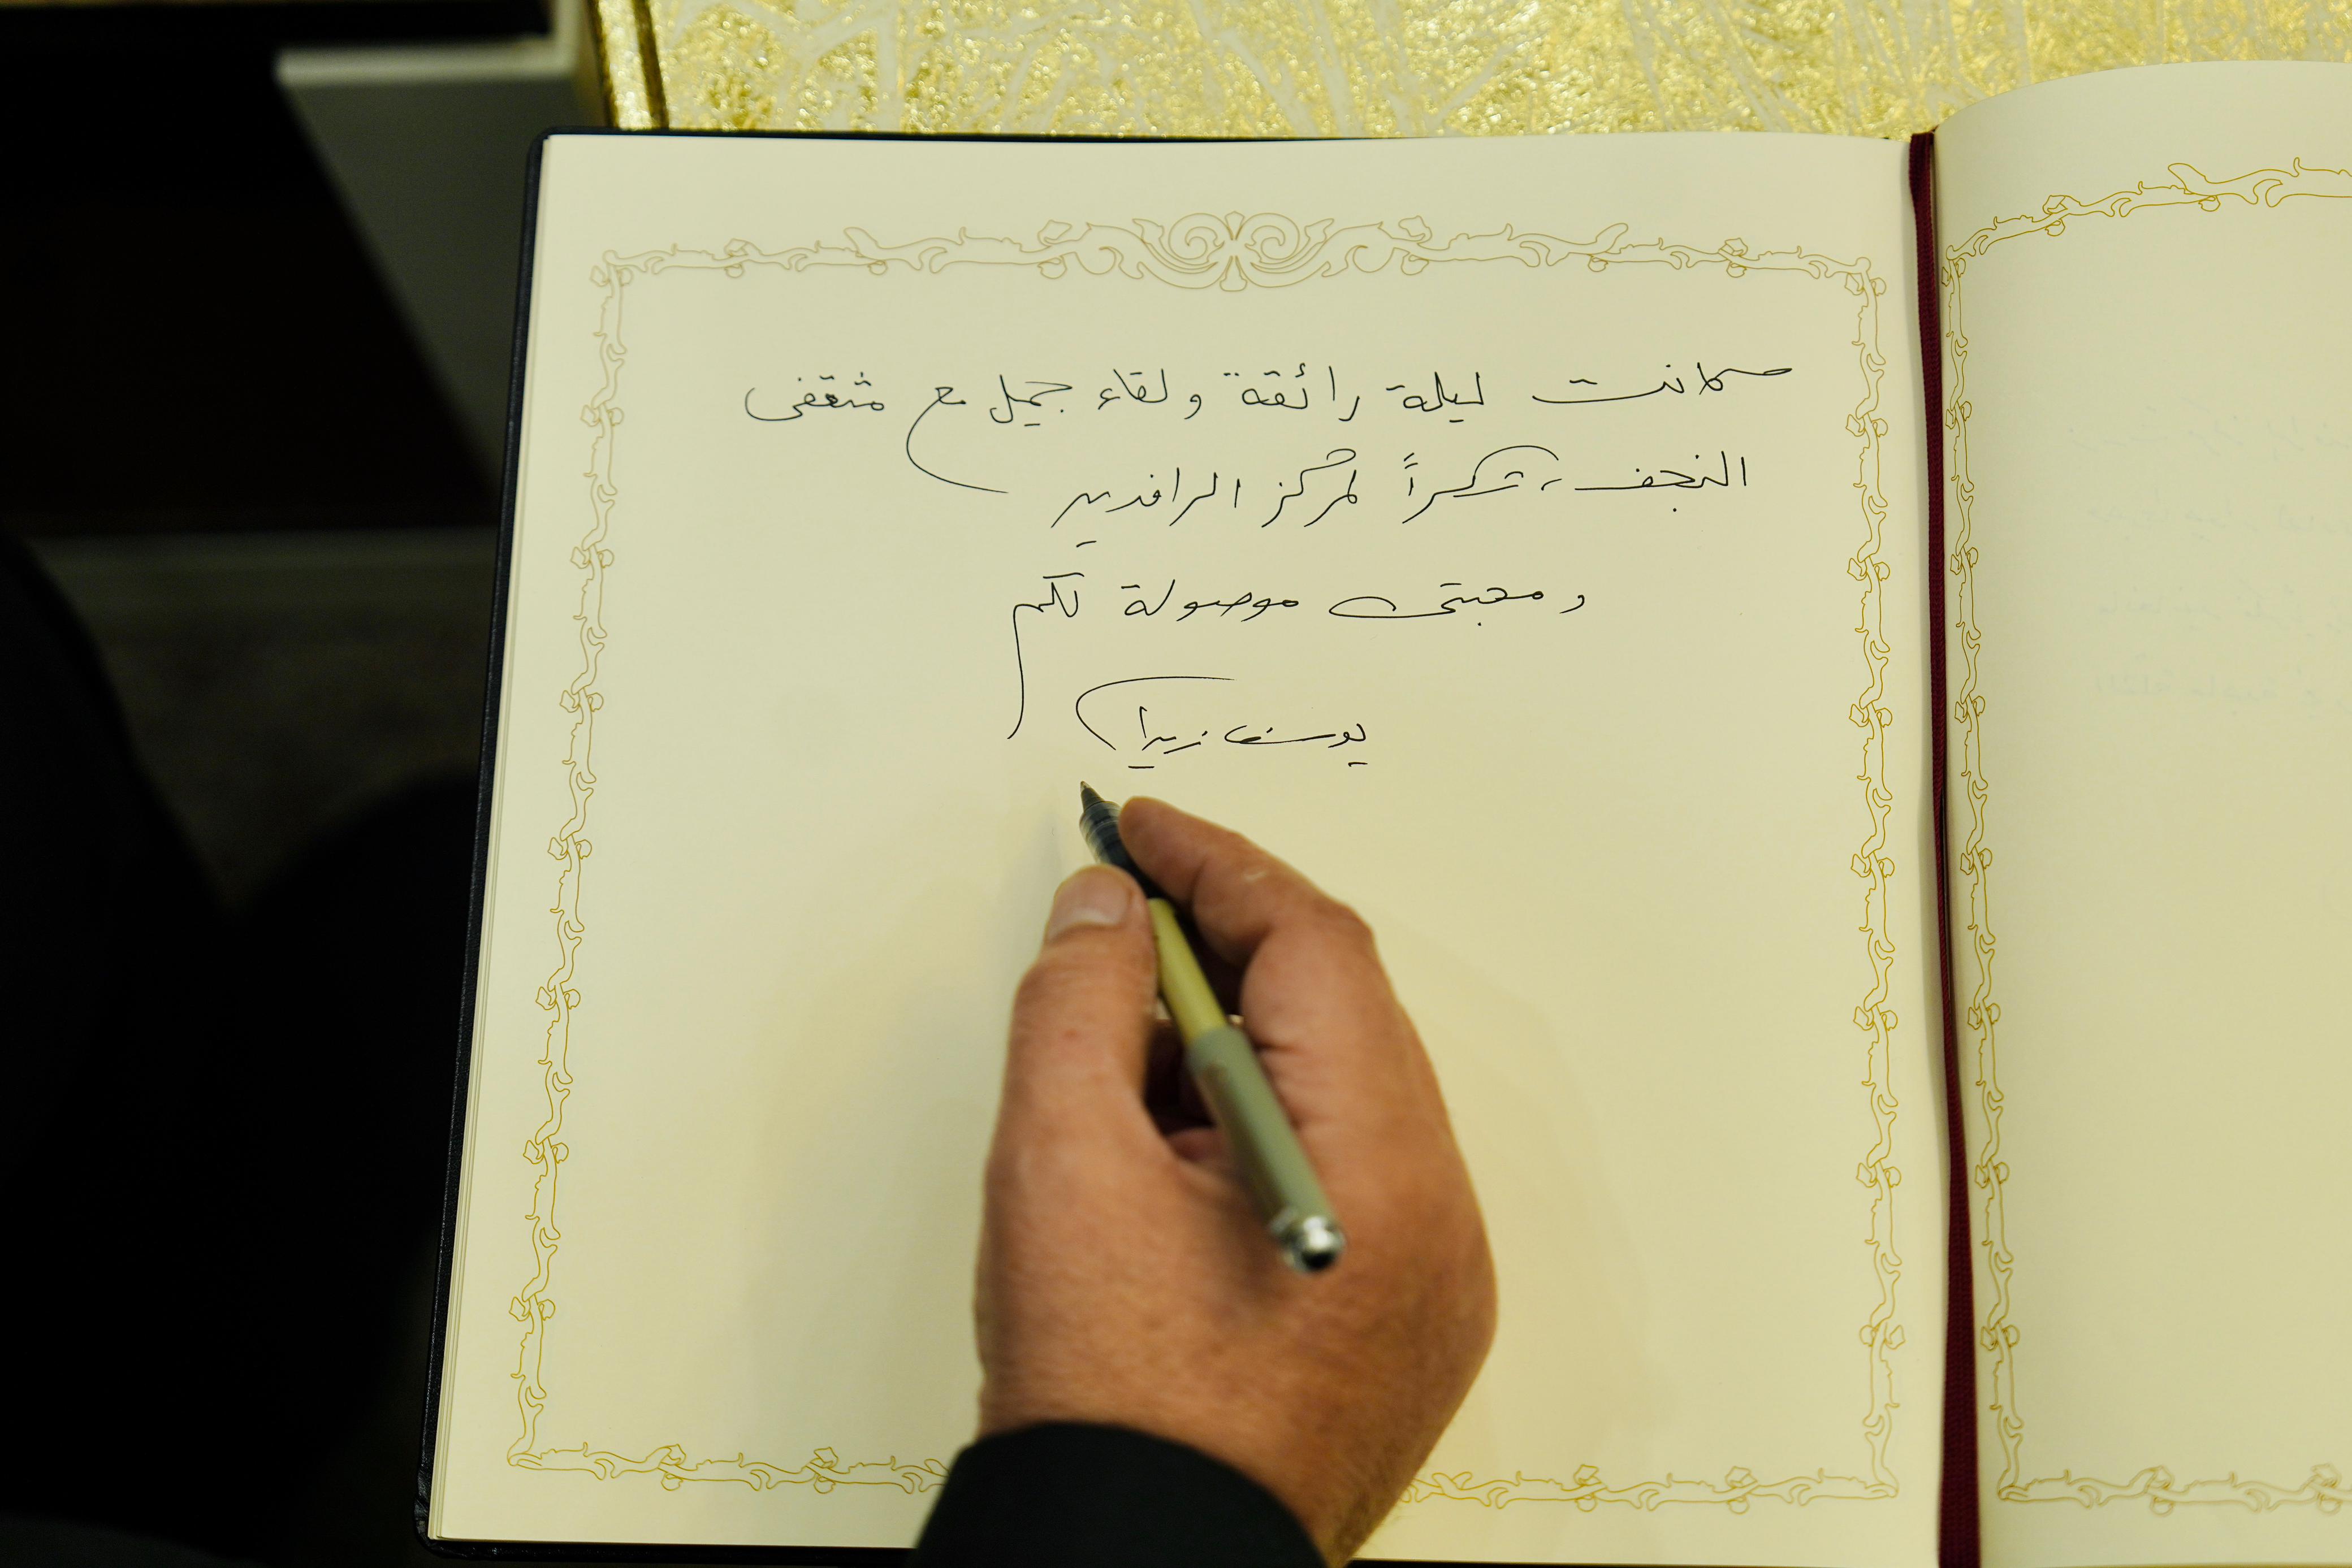 كانت ليلة رائقة ولقاء جميل مع مثقفى
النجف ، شكراً لمركز الرافدين
ومحبتى موصولة لكم
يوسف زيدان